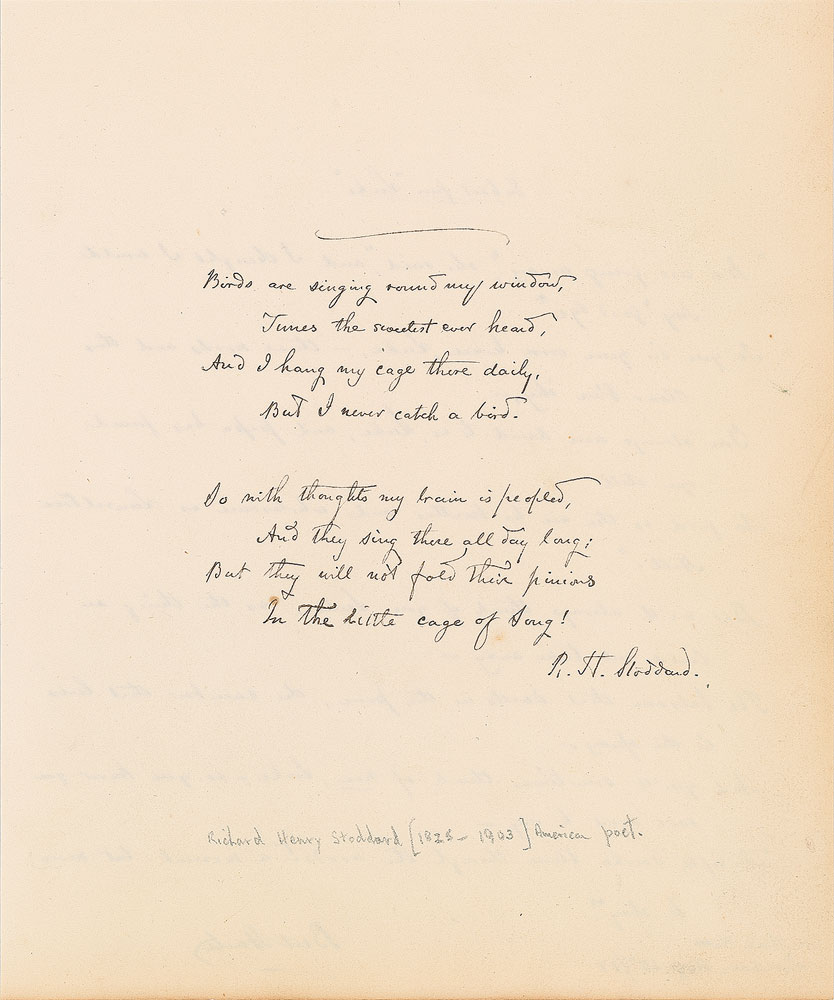 Birds are singing round my window,
Tunes the sweetest ever heard,
And I hang my cage there daily,
But I never catch a bird.
So with thoughts my brain is peopled,
And they sing there all day long;
But they will not fold their pinions
In the little cage of Song!
R. H. Stoddard.
Richard Henry Stoddard [1825 - 1903] American poet.